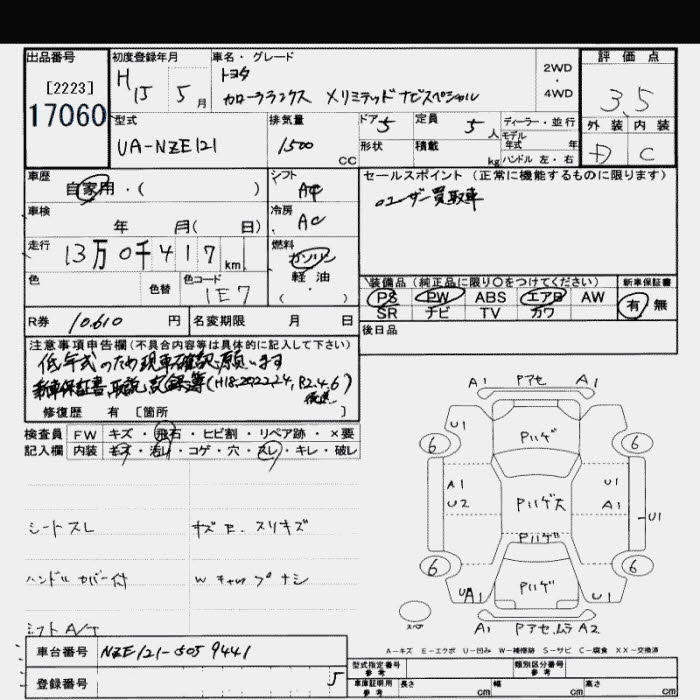 出品番号 初度登録年月 車名・グレード 評価点
[2223] H 15 5月 トヨタ 2WD・4WD 3.5
17060 カローラランクス Xリミテッド ナビスペシャル
型式 排気量 ドア 5 定員 5人 ディーラー・並行 外装 内装
UA-NZE121 1500 CC 形状 積載 kg モデル年式 年 D C
ハンドル 左・右
車歴 自家用・( ) シフト AT セールスポイント(正常に機能するものに限ります)
ユーザー買取車
車検 年 月( 日) 冷房 AC
走行 13万0千417km 燃料 ガソリン
軽油
( )
色 色替 色コード 1E7
装備品(純正品に限り○をつけてください) 新車保証書
PS PW ABS エアB AW 有・無
SR ナビ TV カワ
R券 10.610円 名変期限 月 日 後日品
注意事項申告欄(不具合内容等は具体的に記入して下さい)
低年式のため現車確認願います
新車保証書、取説、記録簿(H18.20.22.24,R2.4.6)
後送
修復歴 有 [箇所 ]
検査員 FW キズ・飛石・ヒビ割・リペア跡・×要
記入欄 内装 キズ・汚レ・コゲ・穴・スレ・キレ・破レ
シートスレ
ハンドルカバー付 Wキャップナシ
シフトA/T
A1 Pアセ A1
U1 Pハゲ
6 6
A1 U1
U2 Pハゲ大 A1 U1
Pハゲ
6 6
UA1 Pハゲ U1
スペア A1 Pアセ.ムラ A2
A−キズ E−エクボ U−凹み W−補修跡 S−サビ C−腐食 XX−交換済
車台番号 NZE121-5059441
登録番号 5
型式指定番号 参考 類別区分番号 参考
車庫証明用 参考 長さ cm 幅 cm 高さ cm